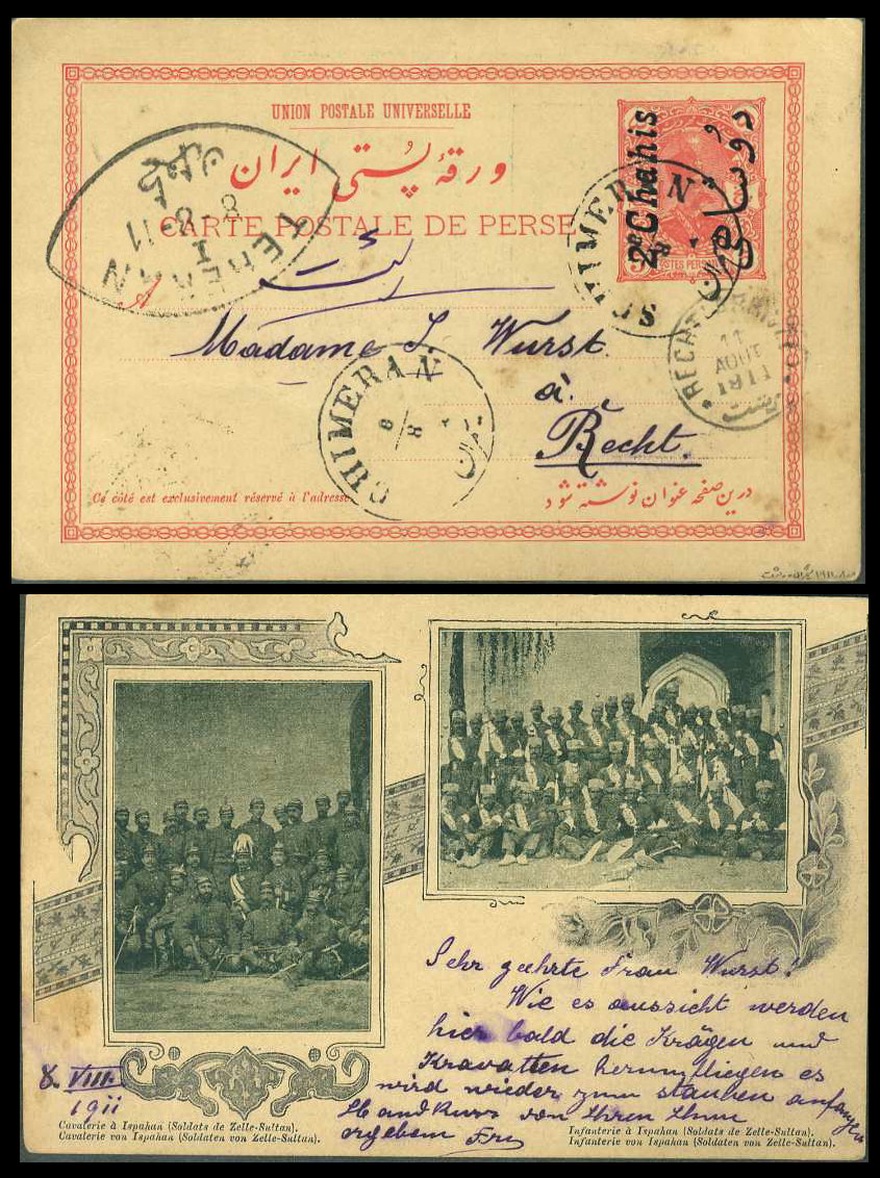 UNION POSTALE UNIVERSELLE
ورقهٔ پُستی ایران
CARTE POSTALE DE PERSE
2 Chahis
دوشاهی
POSTES PERSANES
TEHERAN
طهران
I
8-8-11
CHIMERAN
CHIMERAN
8
8
RECHT
11
AOUT
1911
رشت
رشت
Madame I. Wurst.
à
Recht.
Ce côté est exclusivement réservé à l'adresse
درین صفحه عنوان نوشته شود
Sehr geehrte Frau Wurst!
Wie es aussicht werden
hier bald die Krägen und
Kravatten herumfliegen es
wird wieder zum stauben anfangen
Handkuss von Ihren Ihnen
ergebem
8. VIII.
1911
Cavalerie à Ispahan (Soldats de Zelle-Sultan).
Cavalerie von Ispahan (Soldaten von Zelle-Sultan).
Infanterie à Ispahan (Soldats de Zelle-Sultan).
Infanterie von Ispahan (Soldaten von Zelle-Sultan).